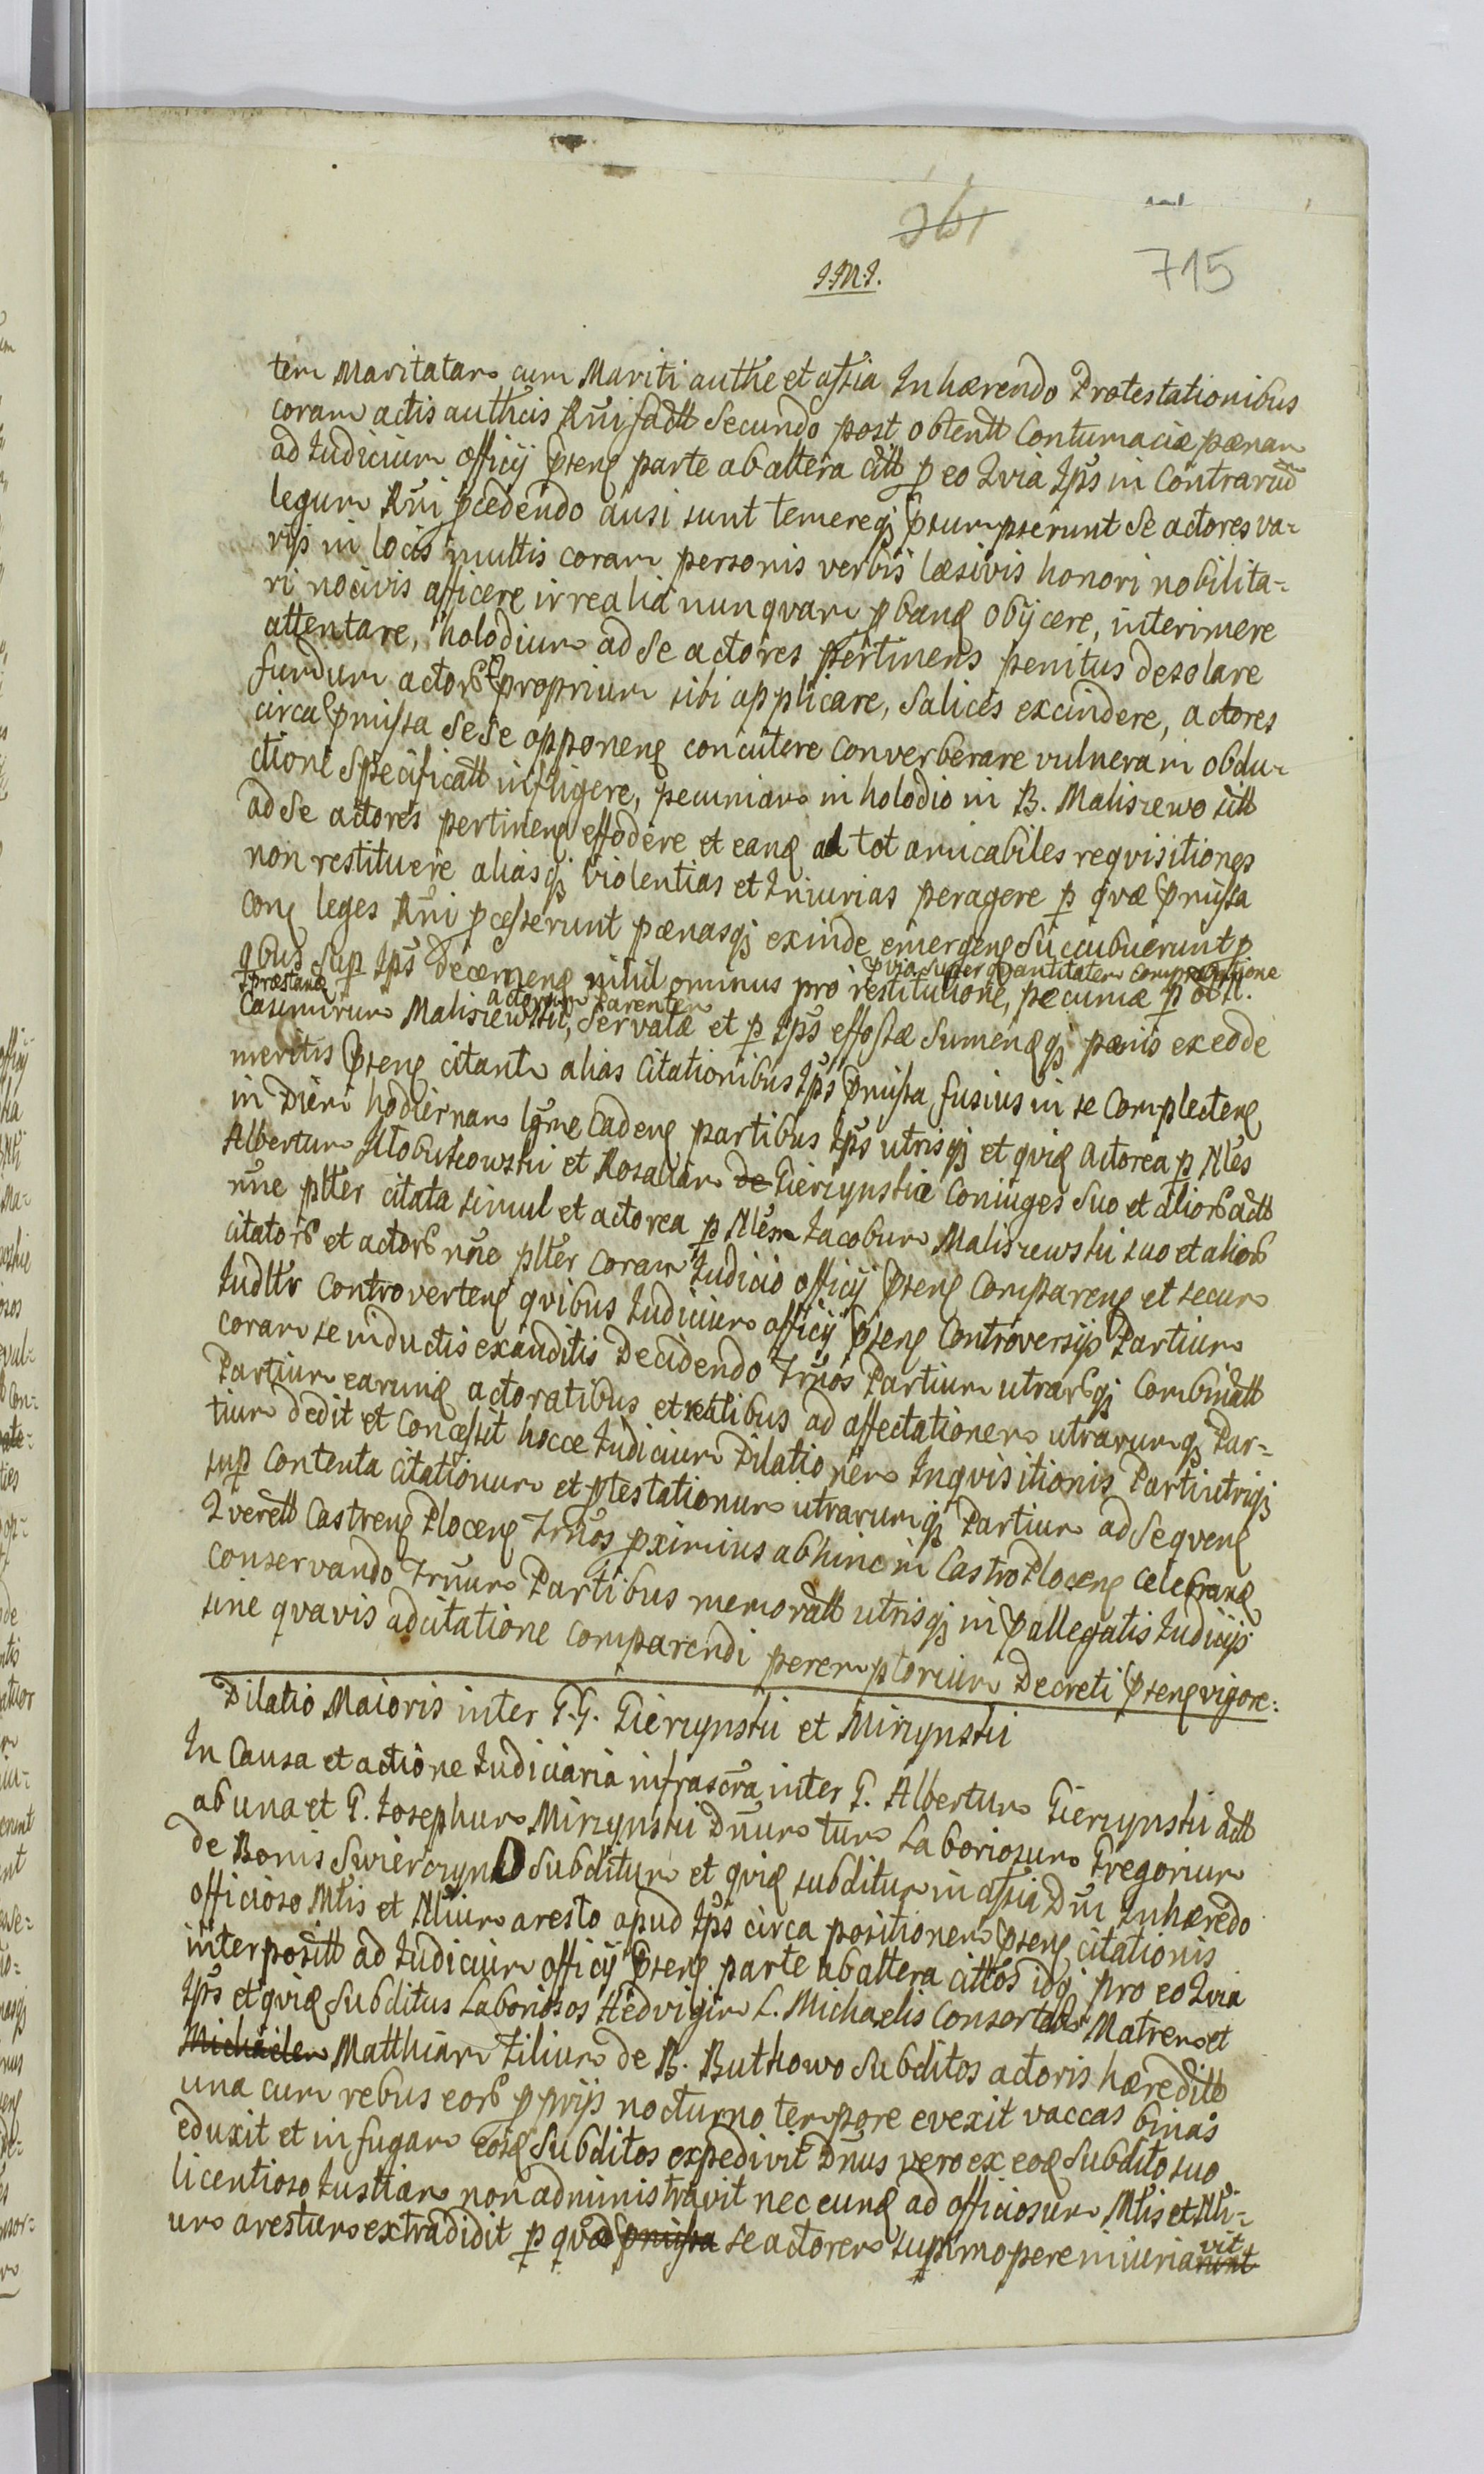 361
715
I.M.I.
tem Maritatam cum Mariti authe et assia Inhærendo Protestationibus
coram actis authcis Rñi factt Secundo post obtentt Contumaciæ pænam
ad Iudicium officij pseng parte ab altera citt p eo Qvia Ips in Contrarium
legum Rñi pcedendo ausi sunt temereqj psumpserunt Se actores va-
rijs in locis multis coram personis verbis læsivis honori nobilita-
ri nocivis afficere irrealia nunqvam pbang obijcere, interimere
attentare, holodium ad Se actores pertinens penitus desolare
fundum actor proprium sibi applicare, Salices excindere, actores
circa pmissa Sese opponeng concutere Converberare vulnera in obdu-
ctione Specificatt infligere, pecuniam in holodio in B. Maliszewo sitt
ad Se actores pertineng effodere et eang ad tot amicabiles reqvisitiones
non restituere aliasqj violentias et Iniurias peragere p qvæ pmissa
Cong leges Rñi pcesserunt pænasqj exinde emergeng Succubuerunt p
qbus Sup Ips decerneng nihil ominus pro restitutione, pecuniæ p olim.
præstang
pvia Super qvantitatem comprobatione
Casimirum Maliszewski, Servatæ et p Ips effossæ Sumengqj pænis ex eodē
actorum Parentem
meritis pseng citantr alias Citationibus Ips pmissa fusius in se Complecteng
in Diem hodiernam lgme Cadeng partibus Ips utrisqj et qvig actorea p Nles
Albertum Klobukowski et Rosaliam de Gierzynskie Coniuges Suo et alior actt
nne plter citata simul et actorea p Nlem Iacobum Maliszewski suo et alior
citator et actor nne plter Coram Iudicio officij pseng Compareng et secum
Iudltr Controverteng qvibus Iudicium officij pseng Controversijs Partium
coram se inductis exauditis Decidendo Trños Partium utrarqj Combinatt
Partium earung actoratibus et reatibus ad affectationem utrarumqj Par-
tium dedit et Concessit hocce Iudicium Dilationem Inqvisitionis Parti utriqj
sup Contenta Citationum et ptestationum utrarumqj Partium ad Seqveng
Qverett Castreng Ploceng Trños pximius abhinc in Castro Ploceng Celebrang
Conservando Trñum Partibus memoratt utrisqj in pallegatis Iudicijs
sine qvavis adcitatione Comparendi peremptorium Decreti pseng vigore:
Dilatio Maioris inter G.G. Gierzynski et Mirzynski
In Causa et actione Iudiciaria infrascra inter G. Albertum Gierzynski actt
ab una et G. Iosephum Mirzynski Dñum tum Laboriosum Gregorium
de Bonis Swierczyn D Subditum et qvig subditum in assia Dñi Inhæredo
officioso Mtis et Nliur aresto apud Ips circa positionem pseng citationis
interpositt ad Iudicium officij pseng parte ab altera cittos idqj pro eo Qvia
Ips et qvig Subditus Laboriosos Hedvigim L. Michaelis Consortem Matrem et
Michaelem Matthiam Filium de B. Butkowo Subditos actoris hæreditt
una cum rebus eor pprijs nocturno tempore evexit vaccas binas
eduxit et in fugam eosg Subditos expedivit Dñus vero ex eog Subdito suo
licentioso Iustiam non administravit nec eung ad officiosum Mtis et Nli-
um arestum extradidit p qvod pmissa se actorem supmopere iniuriavit